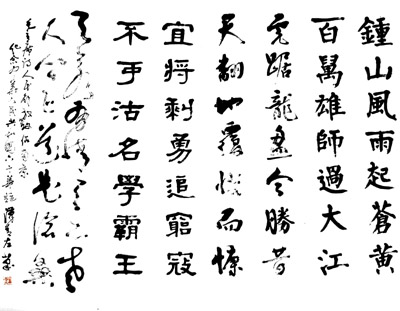 鍾山風雨起蒼黃
百萬雄師過大江
虎踞龍盤今勝昔
天翻地覆慨而慷
宜將剩勇追窮寇
不可沽名學霸王
天若有情天亦老
人間正道是滄桑
毛主席詩人民解放軍佔領南京